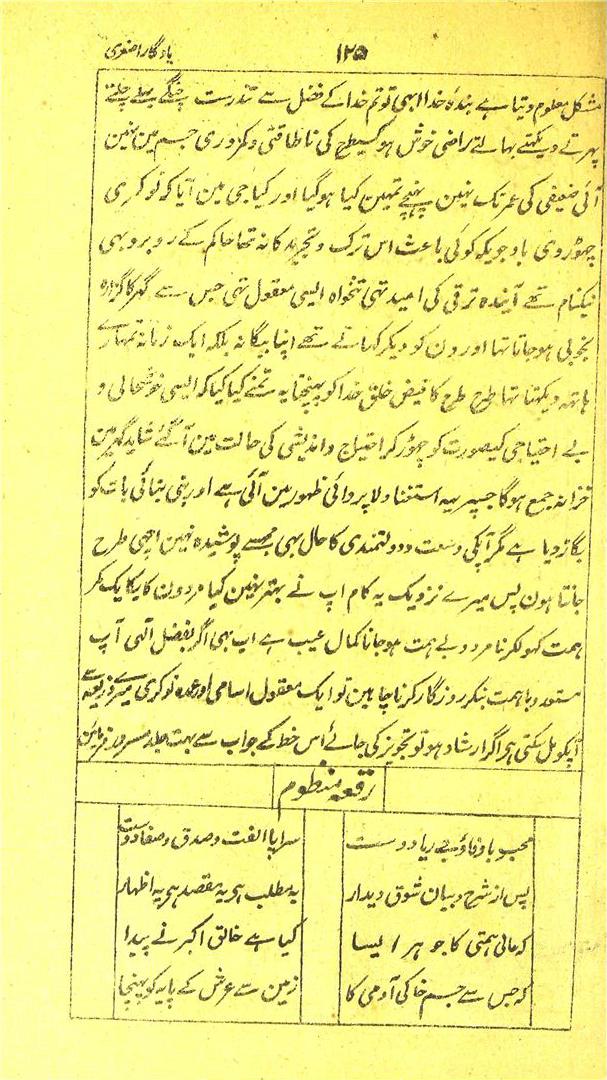 یادگار اصغری
۱۲۵
مشکل معلوم دیتا ہے بندۂ خدا ابہی تو تم خدا کے فضل سے تندرست چنگے بہلے چلتے
پہرتے دیکہتے بہالتے راضی خوش ہو کسیطرح کی ناطاقتی و کمزوری جسم مین نہین
آئی ضعیفی کی عمر تک نہین پہنچے تمہین کیا ہوگیا اور کیا جی مین آیا کہ نوکری
چہوڑ دی باوجودیکہ کوئی باعث اس ترک و تجرید کا نہ تہا حاکم کے روبرو بہی
نیکنام تہے آیندہ ترقی کی امید تہی تنخواہ ایسی معقول تہی جس سے گہر کا گزارہ
بخوبی ہوجاتا تہا اور ون کو دیکر کہاتے تہے اپنا بیگانہ بلکہ ایک زمانہ تمہارے
ہاتہہ دیکہتا تہا طرح طرح کا فیض خلق خدا کو پہنچتا یہ تمنے کیا کیا کہ ایسی خوشحالی و
بے احتیاجی کیصورت کو چہوڑ کر احتیاج و اندیشی کی حالت مین آگئے شاید گہر مین
خزانہ جمع ہوگا جسپر یہہ استغنا و لاپروائی ظہور مین آئی ہے اور بنی بنائی بات کو
بگاڑ دیا ہے مگر آپکی وسعت و دولتمندی کا حال بہی مجہسے پوشیدہ نہین اچہی طرح
جانتا ہون پس میرے نزدیک یہ کام آپ نے بہتر نہین کیا مردون کا یکایک کمر
ہمت کہولکر نامرد و بے ہمت ہوجانا کمال عیب ہے اب بہی اگر بفضل الٰہی آپ
مستعد و با ہمت بنکر روزگار کرنا چاہین تو ایک معقول اسامی اور عمدہ نوکری میرے ذریعہ سے
آپکو مل سکتی ہی اگر ارشاد ہو تو تجویز کی جائے اس خط کے جواب سے بہت جلد مسرور فرمائین
رقعہ منظوم
محب باوفاؤ بے ریا دوست سراپا الفت و صدق و صفا دوست
پس از شرح و بیان شوق دیدار یہ مطلب ہی یہ مقصد ہی یہ اظہار
کہ عالی ہمتی کا جوہر ایسا کیا ہے خالق اکبر نے پیدا
کہ جس سے جسم خاکی آدمی کا زمین سے عرش کے پایہ کو پہنچا